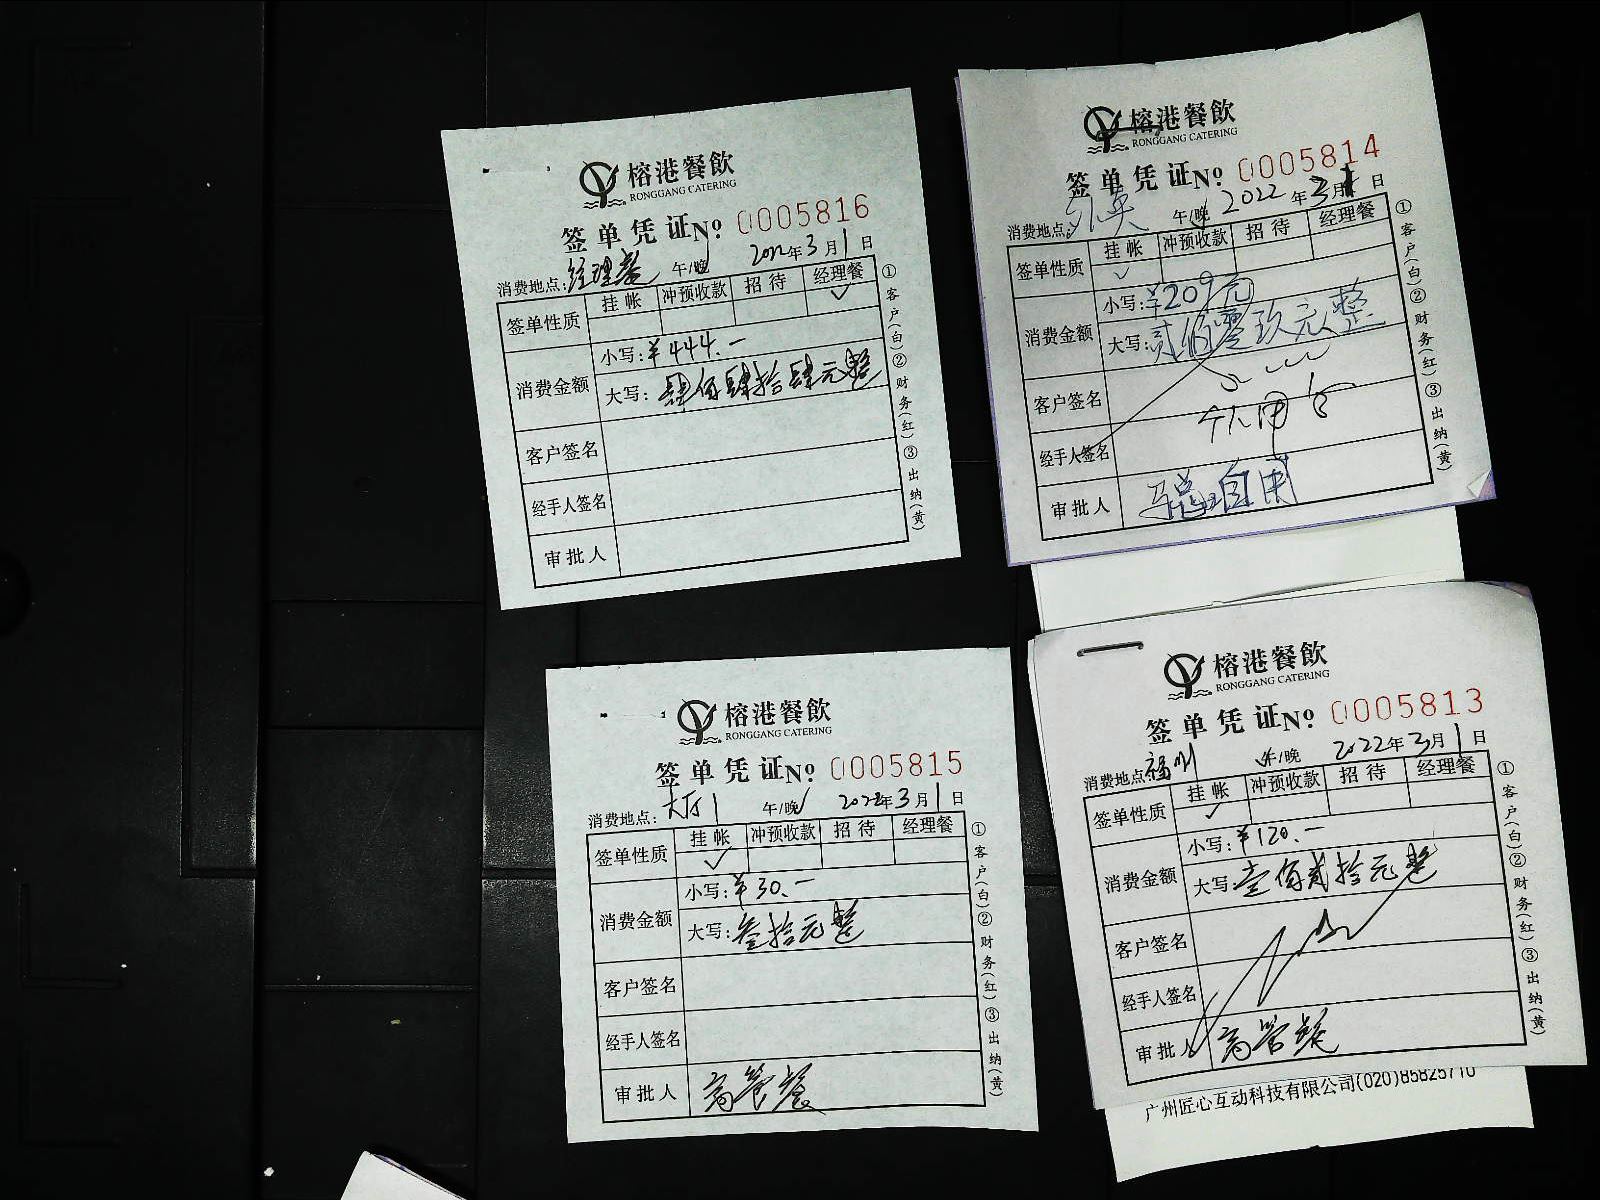 榕港餐飲
RONGGANG CATERING
签单凭证No 0005816
消费地点:经理餐 午/晚 2022年3月1日
签单性质 挂帐 冲预收款 招待 经理餐
消费金额 小写:¥444.-
大写:肆佰肆拾肆元整
客户签名
经手人签名
审批人
①客户(白)②财务(红)③出纳(黄)
榕港餐飲
RONGGANG CATERING
签单凭证No 0005814
消费地点: 午/晚 2022年3月1日
签单性质 挂帐 冲预收款 招待 经理餐
消费金额 小写:¥209元
大写:贰佰零玖元整
客户签名
经手人签名
审批人 自用
①客户(白)②财务(红)③出纳(黄)
榕港餐飲
RONGGANG CATERING
签单凭证No 0005815
消费地点:大厅1 午/晚 2022年3月1日
签单性质 挂帐 冲预收款 招待 经理餐
消费金额 小写:¥30.-
大写:叁拾元整
客户签名
经手人签名
审批人 高管餐
①客户(白)②财务(红)③出纳(黄)
榕港餐飲
RONGGANG CATERING
签单凭证No 0005813
消费地点:福州 午/晚 2022年3月1日
签单性质 挂帐 冲预收款 招待 经理餐
消费金额 小写:¥120.-
大写:壹佰贰拾元整
客户签名
经手人签名
审批人 高管餐
①客户(白)②财务(红)③出纳(黄)
广州匠心互动科技有限公司(020)85825710